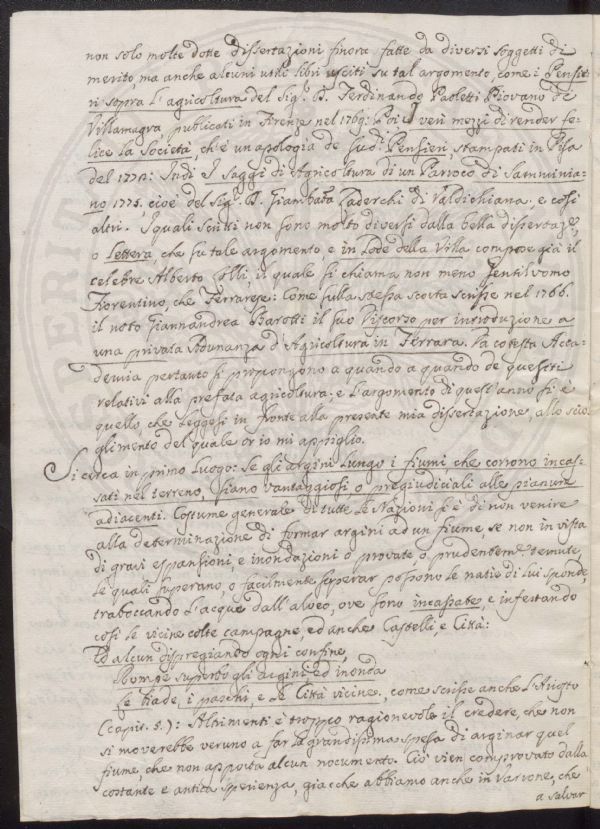 non solo molte dotte dissertazioni finora fatte da diversi soggetti di
merito, ma anche alcuni utili libri usciti su tal argomento, come i Pensie-
ri sopra l'agricoltura del Sig.r D. Ferdinando Paoletti Piovano de
Villamagna publicati in Firenze nel 1769: Poi I veri mezzi di render fe-
lice la Società, ch'è un apologia de suoi Pensieri, stampati in Pisa
del 1772: Indi I saggi di Agricoltura di un Parroco di Samminia-
no 1775. cioè del Sig.r D. Giambatta Landeschi di Valdichiana. e così
altri. I quali scritti non sono molto diversi dalla bella dissertaze,
o Lettera, che su tale argomento e in Lode della Villa compose già il
celebre Alberto Lolli, il quale si chiama non meno Gentiluomo
Fiorentino, che Ferrarese: Come sulla stessa scorta scrisse nel 1766.
il noto Giannandrea Barotti il suo Discorso per introduzione a
una privata Adunanza d'Agricoltura in Ferrara. Da cotesta Acca-
demia pertanto si propongono a quando a quando de' quesiti
relativi alla prefata agricoltura; e l'argomento di quest'anno si è
quello, che leggesi in fronte alla presente mia dissertazione, allo scio-
glimento del quale or io mi appiglio.
Si cerca in primo luogo: Se gli argini lungo i fiumi, che corrono incas-
sati nel terreno, siano vantaggiosi o pregiudiciali alle pianure
adiacenti. Costume generale di tutte le Nazioni si è di non venire
alla determinazione di formar argini ad un fiume, se non in vista
di gravi espansioni, e inondazioni o provate o prudentem.te temute,
le quali superano, o facilmente superar possono le natie di lui sponde,
traboccando l'acque dall'alveo, ove sono incassate, e infestando
così le vicine colte campagne, ed anche Castelli e Città:
Ed alcun dispregiando ogni confine,
Rompe superbo gli argini, ed inonda
Le biade, i paschi, e le Città vicine. come scrisse anche l'Ariosto
(capit. 5.): Altrimenti è troppo ragionevole il credere, che non
si moverebbe veruno a far la grandissima spesa di arginar quel
fiume, che non apporta alcun nocumento. Ciò vien comprovato dalla
costante e antica sperienza, giacchè abbiamo anche in Varrone, che
a salvar